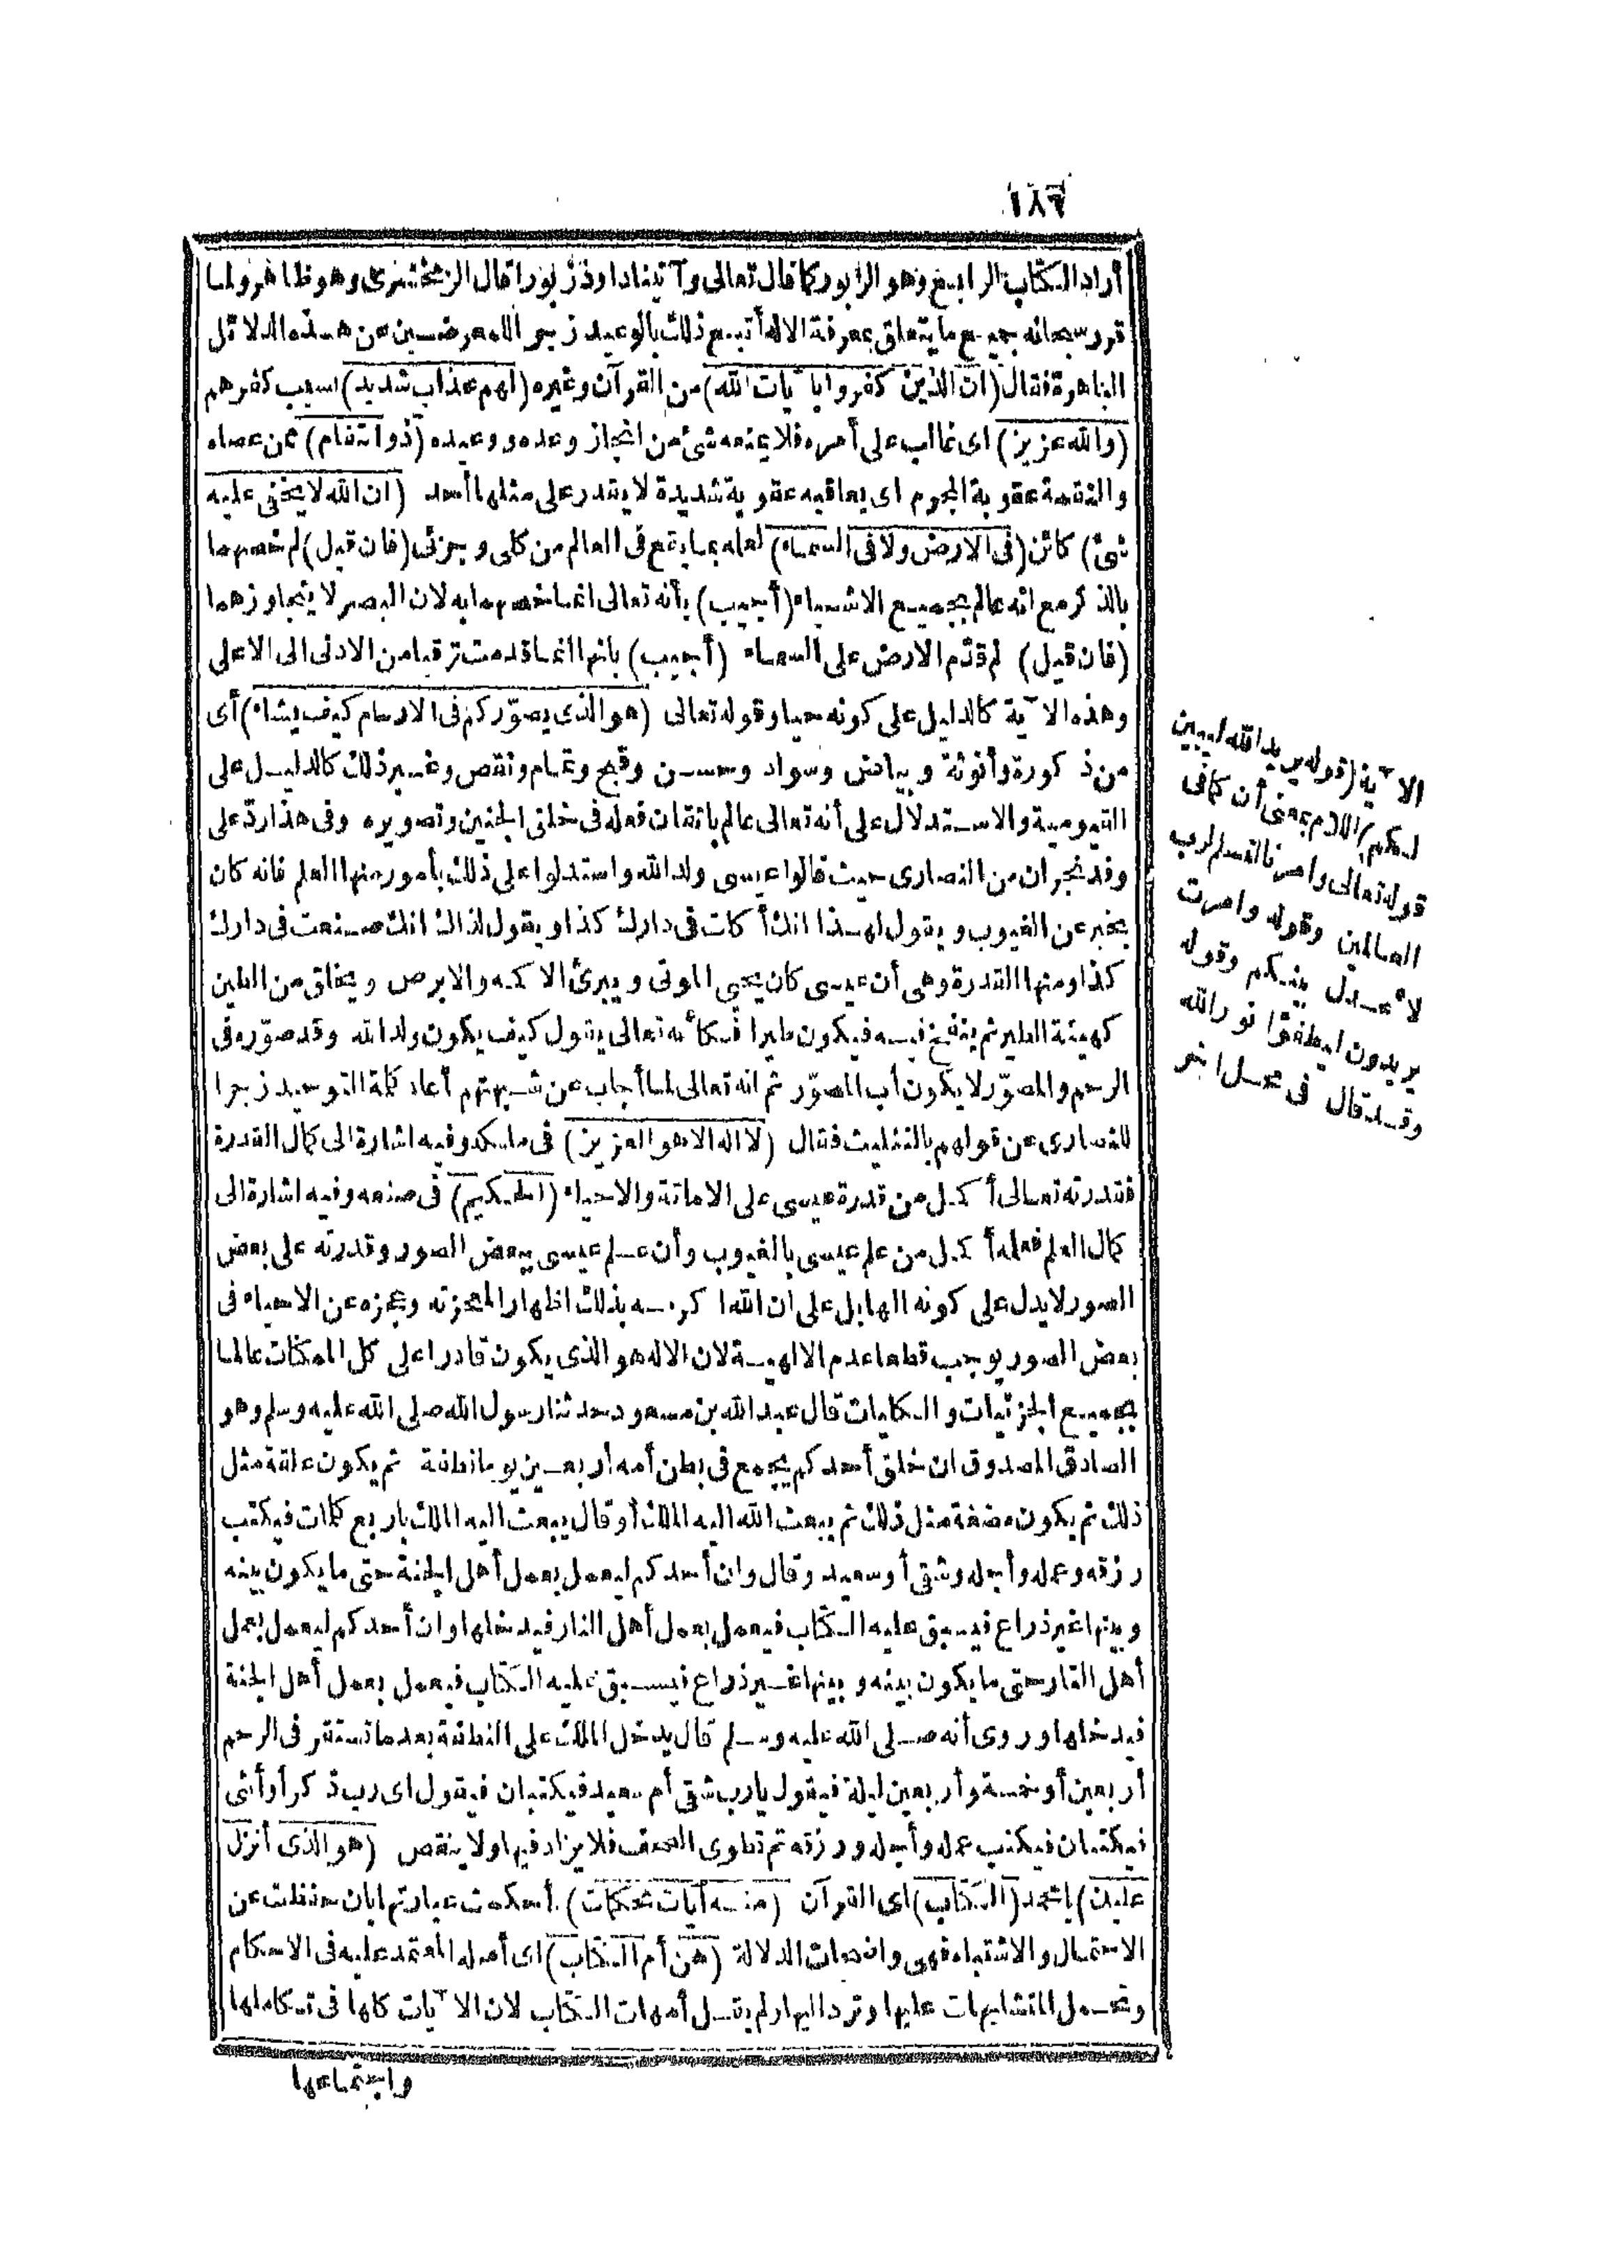 ١٨٦
أراد الكتاب الرابع وهو الزبور كما قال تعالى وآتينا داود زبورا قال الزمخشرى وهو ظاهر ولما
قرر سبحانه جميع ما يتعلق بمعرفة الاله أتبع ذلك بالوعيد زجرا للمعرضين عن هذه الدلائل
الباهرة فقال (ان الذين كفروا بآيات الله) من القرآن وغيره (لهم عذاب شديد) بسبب كفرهم
(والله عزيز) اى غالب على أمره فلا يمنعه شئ من انجاز وعده ووعيده (ذو انتقام) ممن عصاه
والنقمة عقوبة المجرم اى يعاقبه عقوبة شديدة لا يقدر على مثلها أحد (ان الله لا يخفى عليه
شئ) كائن (فى الارض ولا فى السماء) لعلمه بما يقع فى العالم من كلى وجزئى (فان قيل) لم خصهما
بالذكر مع انه عالم بجميع الاشياء (أجيب) بأنه تعالى انما خصهما به لان البصر لا يتجاوزهما
(فان قيل) لم قدّم الارض على السماء (أجيب) بانها انما قدمت ترقيا من الادنى الى الاعلى
وهذه الآية كالدليل على كونه حيا وقوله تعالى (هو الذى يصوّركم فى الارحام كيف يشاء) أى
من ذكورة وأنوثة وبياض وسواد وحسن وقبح وتمام ونقص وغير ذلك كالدليل على
القيومية والاستدلال على أنه تعالى عالم باتقان فعله فى خلق الجنين وتصويره وفى هذا ردّ على
وفد نجران من النصارى حيث قالوا عيسى ولد الله واستدلوا على ذلك بأمور منها العلم فانه كان
يخبر عن الغيوب ويقول لهذا انك أكلت فى دارك كذا ويقول لذاك انك صنعت فى دارك
كذا ومنها القدرة وهى أن عيسى كان يحيى الموتى ويبرئ الاكمه والابرص ويخلق من الطين
كهيئة الطير ثم ينفخ فيه فيكون طيرا فكأنه تعالى يقول كيف يكون ولد الله وقد صوّره فى
الرحم والمصوّر لا يكون أب المصوّر ثم انه تعالى لما أجاب عن شبهتهم أعاد كلمة التوحيد زجرا
للنصارى عن قولهم بالتثليث فقال (لا اله الا هو العزيز) فى ملكه وفيه اشارة الى كمال القدرة
فقدرته تعالى أكمل من قدرة عيسى على الاماتة والاحياء (الحكيم) فى صنعه وفيه اشارة الى
كمال العلم فعلمه أكمل من علم عيسى بالغيوب وأن علم عيسى ببعض الصور وقدرته على بعض
الصور لا يدل على كونه الها بل على ان الله أكرمه بذلك اظهارا لمعجزته وعجزه عن الاحياء فى
بعض الصور يوجب قطعا عدم الالهية لان الاله هو الذى يكون قادرا على كل الممكنات عالما
بجميع الجزئيات والكليات قال عبد الله بن مسعود حدثنا رسول الله صلى الله عليه وسلم وهو
الصادق المصدوق ان خلق أحدكم يجمع فى بطن أمه أربعين يوما نطفة ثم يكون علقة مثل
ذلك ثم يكون مضغة مثل ذلك ثم يبعث الله اليه الملك أو قال يبعث اليه الملك باربع كلمات فيكتب
رزقه وعمله وأجله وشقى أو سعيد وقال وان أحدكم ليعمل بعمل أهل الجنة حتى ما يكون بينه
وبينها غير ذراع فيسبق عليه الكتاب فيعمل بعمل أهل النار فيدخلها وان أحدكم ليعمل بعمل
أهل النار حتى ما يكون بينه وبينها غير ذراع فيسبق عليه الكتاب فيعمل بعمل أهل الجنة
فيدخلها وروى أنه صلى الله عليه وسلم قال يدخل الملك على النطفة بعد ما تستقر فى الرحم
أربعين أو خمسة وأربعين ليلة فيقول يا رب شقى أم سعيد فيكتبان فيقول اى رب ذكر أو أنثى
فيكتبان فيكتب عمله وأجله ورزقه ثم تطوى الصحف فلا يزاد فيها ولا ينقص (هو الذى أنزل
عليك) يا محمد (الكتاب) اى القرآن (منه آيات محكمات) أحكمت عبارتها بان حفظت عن
الاحتمال والاشتباه فهى واضحات الدلالة (هن أم الكتاب) اى أصله المعتمد عليه فى الاحكام
وتحمل المتشابهات عليها وترد اليها ولم يقل أمهات الكتاب لان الآيات كلها فى تكاملها
واجتماعها
الآية (قوله يريد الله ليبين
لكم) اللام بمعنى أن كما فى
قوله تعالى وأمرنا لنسلم لرب
العالمين وقوله وامرت
لأعدل بينكم وقوله
يريدون ليطفؤا نور الله
وقد قال فى محل آخر